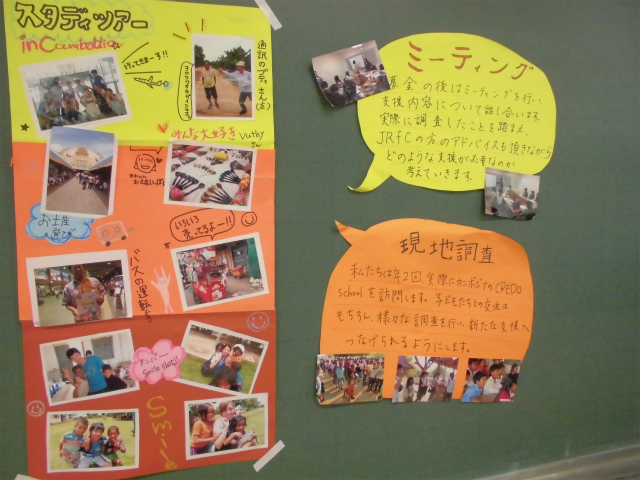 スタディツアー
in Cambodia
行ってきまーす!!
通訳のブティさん(左)
みんな大好き Vuthyさん
お土産選び
いろいろ売ってるよー!!
バスの運転
メンバー
Smile shot!!
Smile
ミーティング
募金の後はミーティングを行い、
支援内容について話し合います。
実際に調査したことを踏まえ、
JRfCの方のアドバイスも頂きながら
どのような支援が必要なのか
考えていきます。
現地調査
私たちは年2回、実際にカンボジアのCREDO
schoolを訪問します。子どもたちとの交流は
もちろん、様々な調査を行い、新たな支援へ
つなげられるようにします。